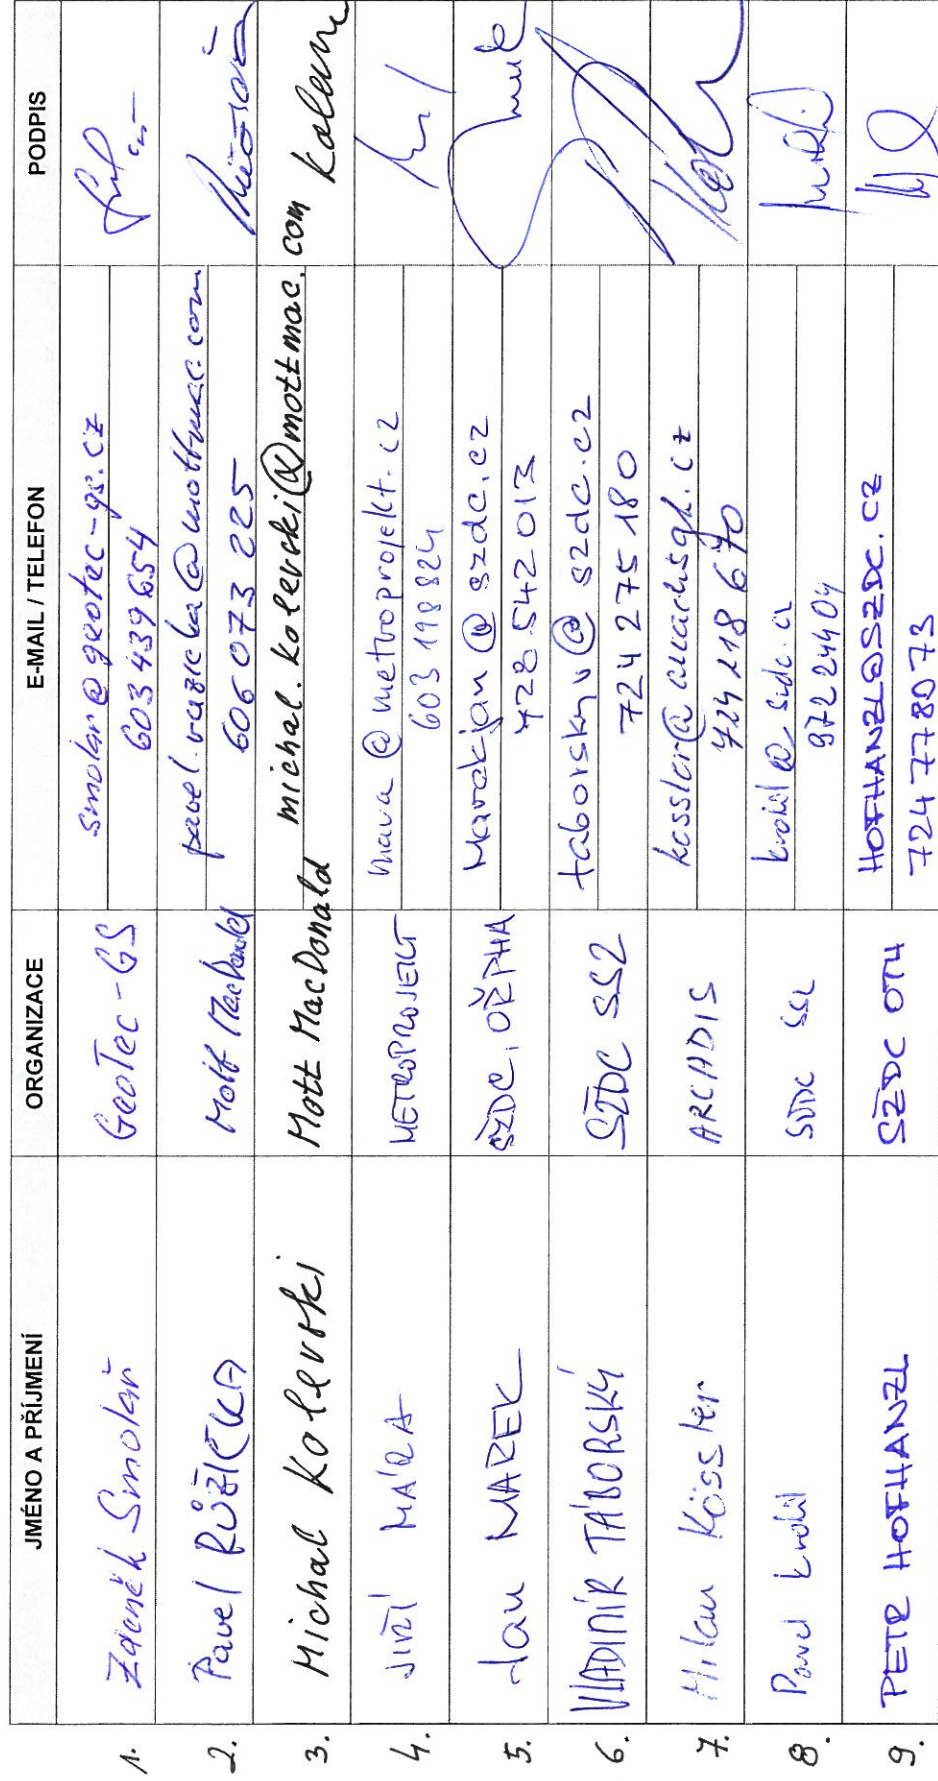 JMÉNO A PŘÍJMENÍ ORGANIZACE E-MAIL / TELEFON PODPIS
1. Zdeněk Smolář GeoTec-GS smolar@geotec-gs.cz
603 439 654
2. Pavel RŮŽIČKA Mott MacDonald pavel.ruzicka@mottmac.com
606 073 225
3. Michal Kolevski Mott MacDonald michal.kolevski@mottmac.com
4. JIŘÍ MÁRA METROPROJEKT mara@metroprojekt.cz
603 198 824
5. Jan MAREK SŽDC, OŘ PHA Marekjan@szdc.cz
728 542 013
6. VLADIMÍR TÁBORSKÝ SŽDC SS2 taborskyv@szdc.cz
724 275 180
7. Milan Kössler ARCADIS
8. Pavel SŽDC
972 244 04
9. PETR HOFHANZL SŽDC OTH HOFHANZL@SZDC.CZ
724 778073